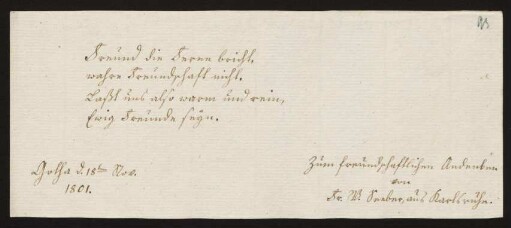 Freund die Ferne bricht,
wahre Freundschaft nicht.
Laßt uns also warm und rein,
Ewig Freunde seyn.
Gotha d. 18ten Nov.
1801.
Zum freundschaftlichen Andenken
von
Fr. W. Seeber, aus Karlsruhe.